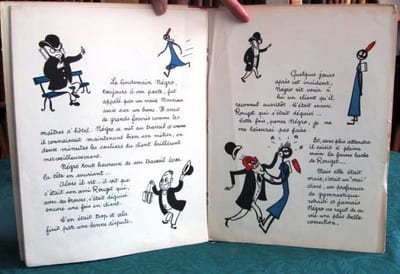 Le lendemain Négro,
toujours à son poste, fut
appelé par un vieux Monsieur
assis sur un banc. Il avait
de grands favoris comme les
maîtres d'hôtel. Négro se mit au travail et comme
il connaissait maintenant bien son métier, en
deux minutes les souliers du client brillèrent
merveilleusement.
Négro tout heureux de son travail leva
la tête en souriant...
Alors il vit.. il vit que
c'était son ami Rouget qui,
avec ses brosses, s'était déguisé
encore une fois en client.
S'en était trop et cela
finit par une bonne dispute.
Quelques jours
après cet incident,
Négro vit venir à
lui un client qu'il
reconnut aussitôt. C'était encore
Rouget qui s'était déguisé...
cette fois, pensa Négro, je ne
me laisserai pas faire.
Et, sans plus attendre
il saisit à pleine
main la fausse barbe
de Rouget...
Mais elle était
vraie, c'était un vrai
client, un professeur
de gymnastique
retraité et jamais
Négro ne reçut de sa
vie une plus belle
correction.